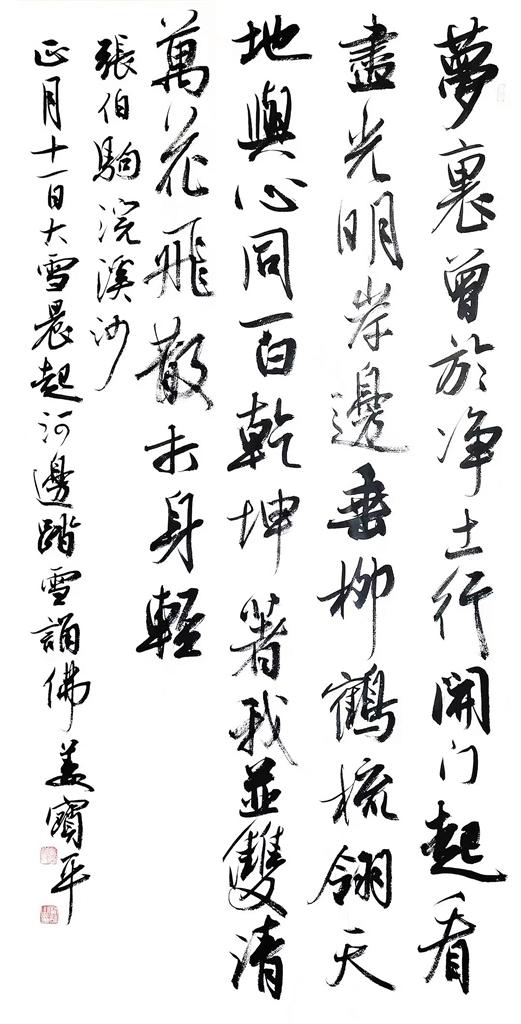 夢裏曾於净土行開门起看
盡光明岸邊垂柳鶴梳翎天
地與心同一白乾坤著我並雙清
萬花飛散打身輕
張伯駒浣溪沙
正月十一日大雪晨起河邊踏雪誦佛 姜寶平